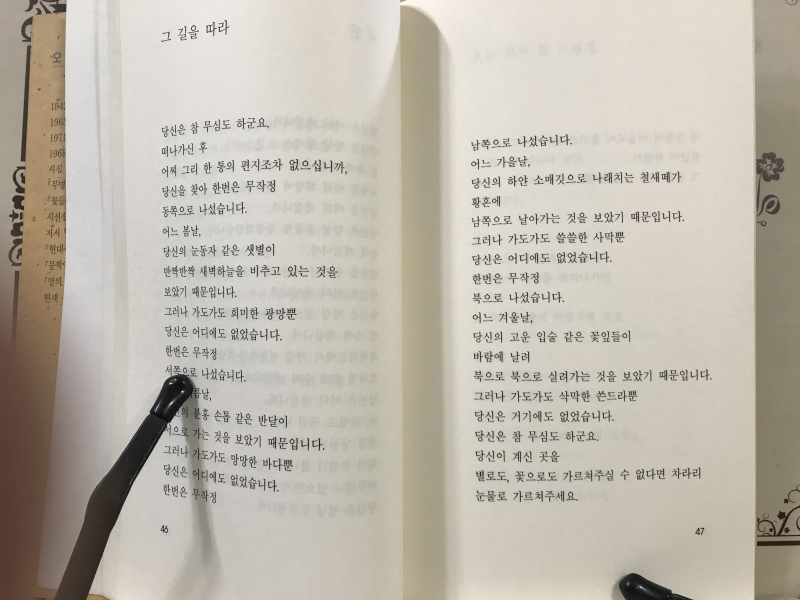 그 길을 따라
당신은 참 무심도 하군요.
떠나가신 후
어찌 그리 한 통의 편지조차 없으십니까,
당신을 찾아 한번은 무작정
동쪽으로 나섰습니다.
어느 봄날,
당신의 눈동자 같은 샛별이
반짝반짝 새벽하늘을 비추고 있는 것을
보았기 때문입니다.
그러나 가도가도 희미한 광망뿐
당신은 어디에도 없었습니다.
한번은 무작정
서쪽으로 나섰습니다.
름날,
분홍 손톱 같은 반달이
서으로 가는 것을 보았기 때문입니다.
그러나 가도가도 망망한 바다뿐
당신은 어디에도 없었습니다.
한번은 무작정
46
남쪽으로 나섰습니다.
어느 가을날,
당신의 하얀 소매깃으로 나래치는 철새떼가
황혼에
남쪽으로 날아가는 것을 보았기 때문입니다.
그러나 가도가도 쓸쓸한 사막뿐
당신은 어디에도 없었습니다.
한번은 무작정
북으로 나섰습니다.
어느 겨울날,
당신의 고운 입술 같은 꽃잎들이
바람에 날려
북으로 북으로 실려가는 것을 보았기 때문입니다.
그러나 가도가도 삭막한 쓴드라뿐
당신은 거기에도 없었습니다.
당신은 참 무심도 하군요.
당신이 계신 곳을
별로도, 꽃으로도 가르쳐주실 수 없다면 차라리
눈물로 가르쳐주세요.
47
오
1942
1965
1971
1968
시집
꽃들
시선
저서
『현대
『문학
『말의
현재